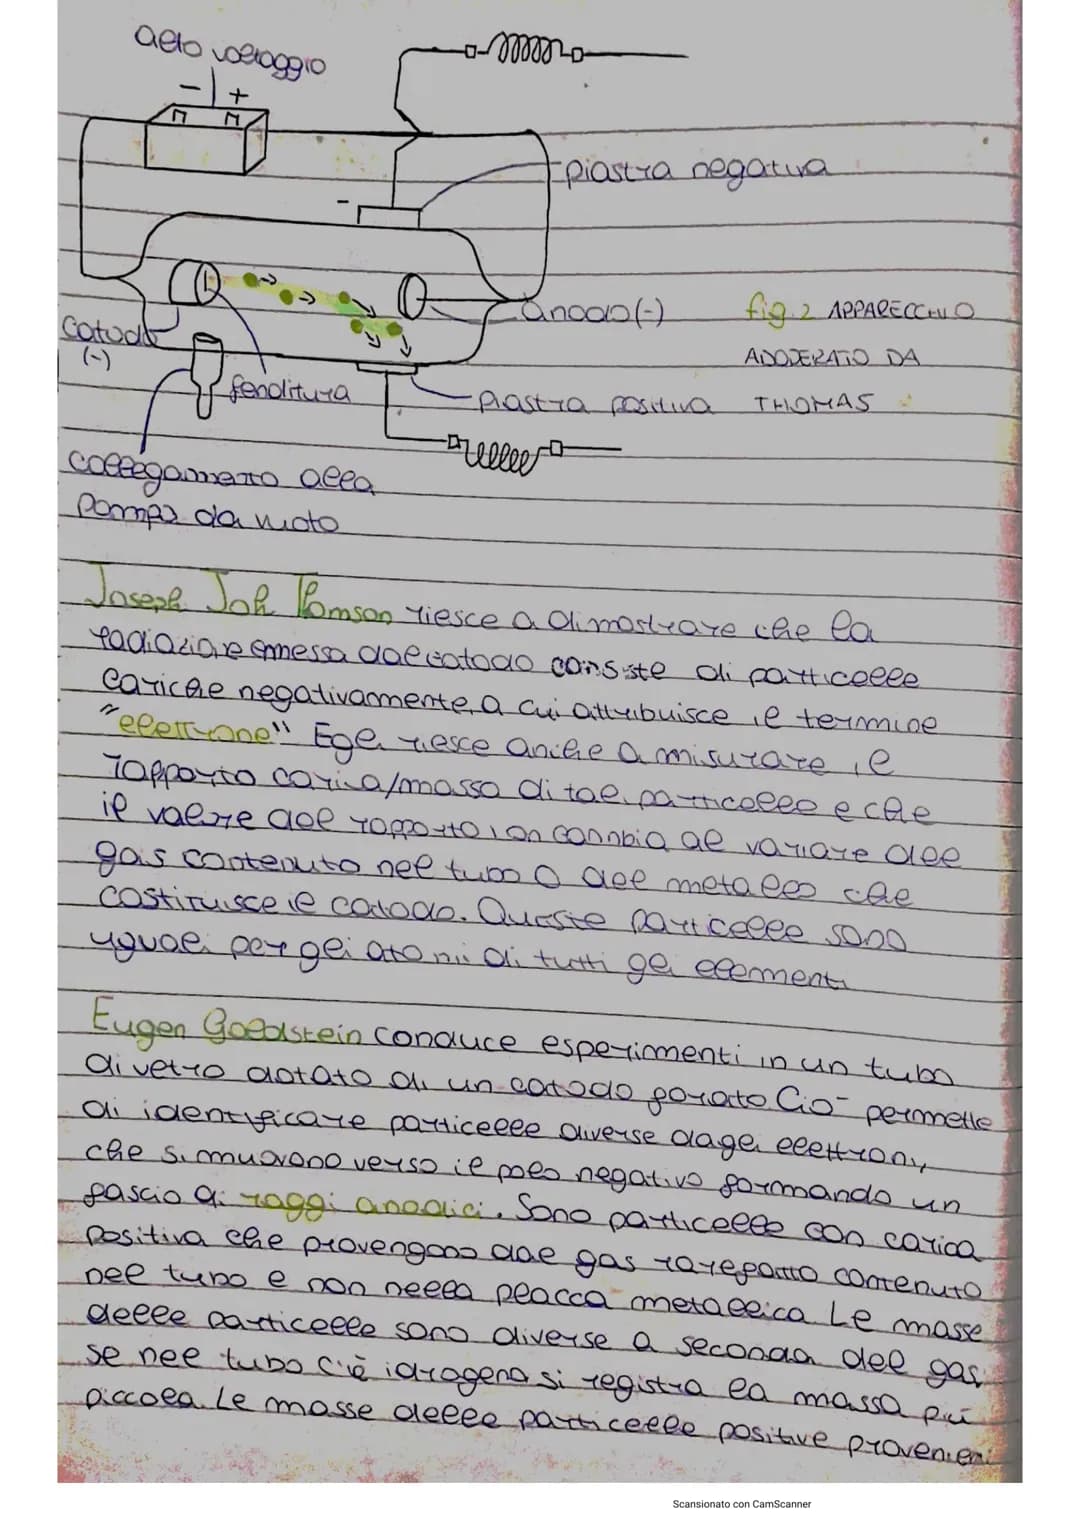 alto voltaggio
- +
piastra negativa
-
anodo (-)
fig. 2 APPARECCHIO
ADOPERATO DA
THOMAS
catodo
(-)
fenditura
piastra positiva
collegamento alla
pompa da vuoto
Joseph Joh Thomson riesce a dimostrare che la
radiazione emessa dal catodo consiste di particelle
cariche negativamente, a cui attribuisce il termine
"elettrone" Egli riesce anche a misurare il
rapporto carica/massa di tali particelle e che
il valore del rapporto non cambia al variare del
gas contenuto nel tubo o del metallo che
costituisce il catodo. Queste particelle sono
uguali per gli atomi di tutti gli elementi
Eugen Goldstein conduce esperimenti in un tubo
di vetro dotato di un catodo forato Ciò permette
di identificare particelle diverse dagli elettroni,
che si muovono verso il polo negativo formando un
fascio di raggi anodici. Sono particelle con carica
positiva che provengono dal gas rarefatto contenuto
nel tubo e non nella placca metallica Le masse
delle particelle sono diverse a seconda del gas.
se nel tubo c'è idrogeno si registra la massa più
piccola. Le masse delle particelle positive provenien
Scansionato con CamScanner